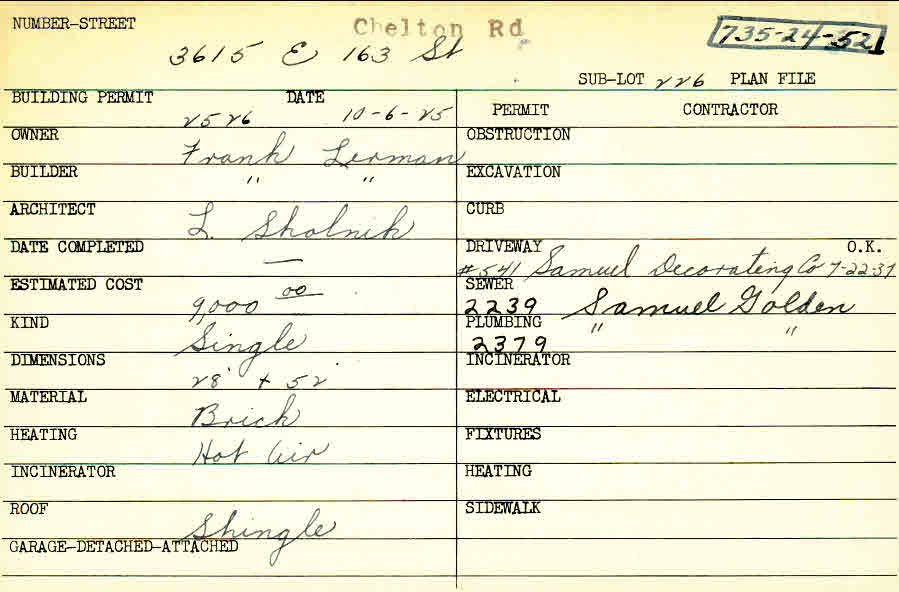 NUMBER-STREET Chelton Rd 735-24-52
3615 E 163 St
SUB-LOT 226 PLAN FILE
BUILDING PERMIT DATE PERMIT CONTRACTOR
2526 10-6-25
OWNER Frank Lerman OBSTRUCTION
BUILDER " " EXCAVATION
ARCHITECT L. Skolnik CURB
DATE COMPLETED — DRIVEWAY O.K.
#541 Samuel Decorating Co 7-22-37
ESTIMATED COST 9,000 00 SEWER
2239 Samuel Golden
KIND Single PLUMBING " "
2379
DIMENSIONS 28' + 52' INCINERATOR
MATERIAL Brick ELECTRICAL
HEATING Hot Air FIXTURES
INCINERATOR HEATING
ROOF Shingle SIDEWALK
GARAGE-DETACHED-ATTACHED